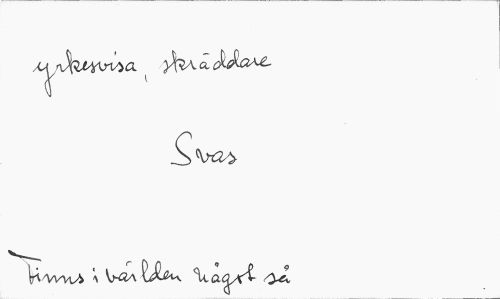 yrkesvisa, skräddare
Svas
Finns i världen något så